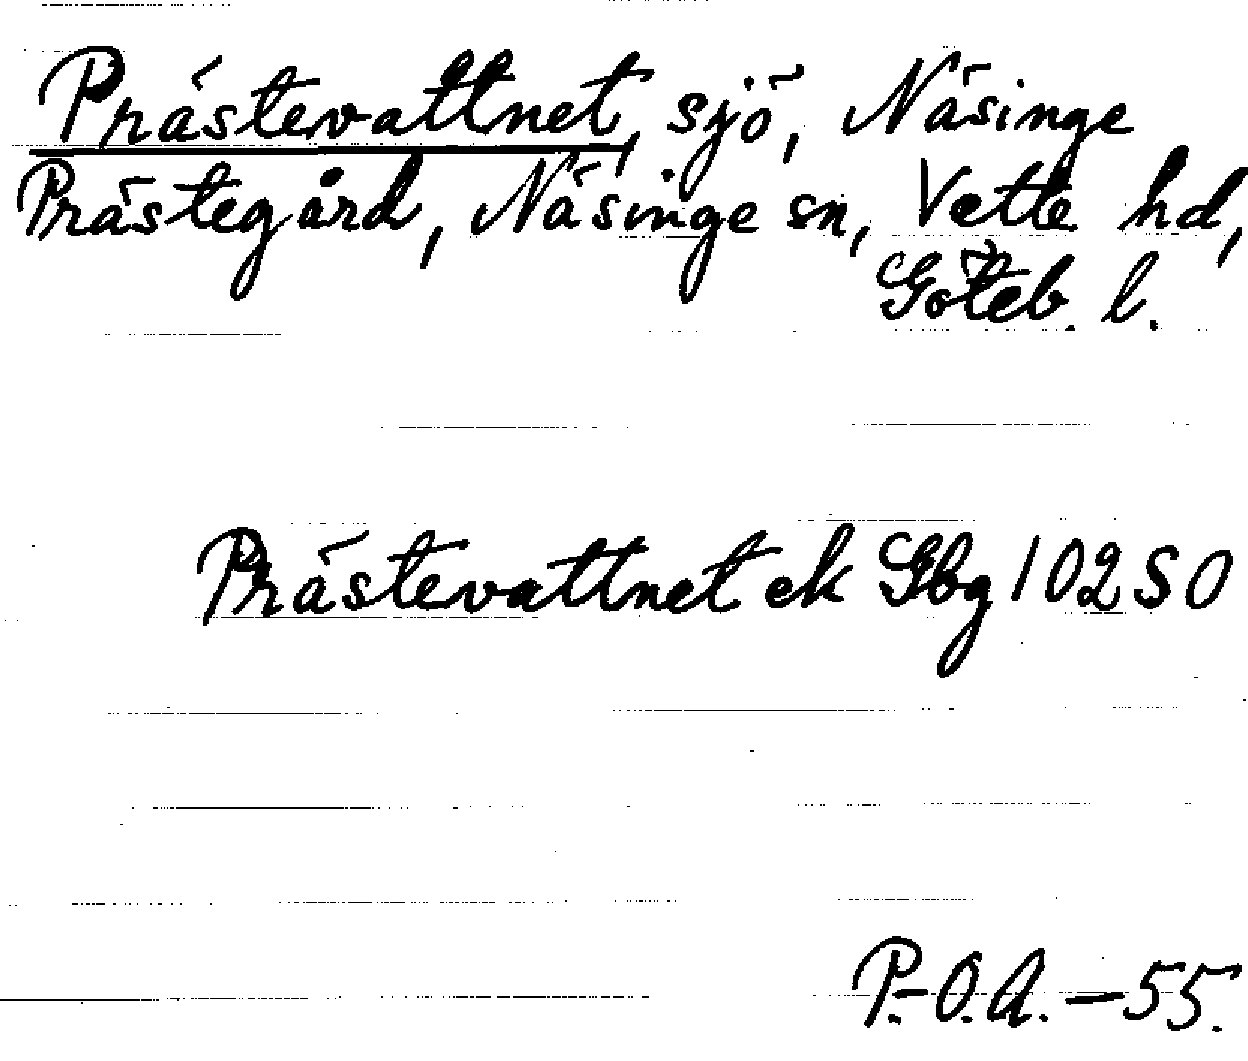 Prästevattnet, sjö, Näsinge
Prästegård, Näsinge sn, Vette hd,
Göteb. l.
Prästevattnet ek Gbg 102 SO
P.-O.A. - 55.